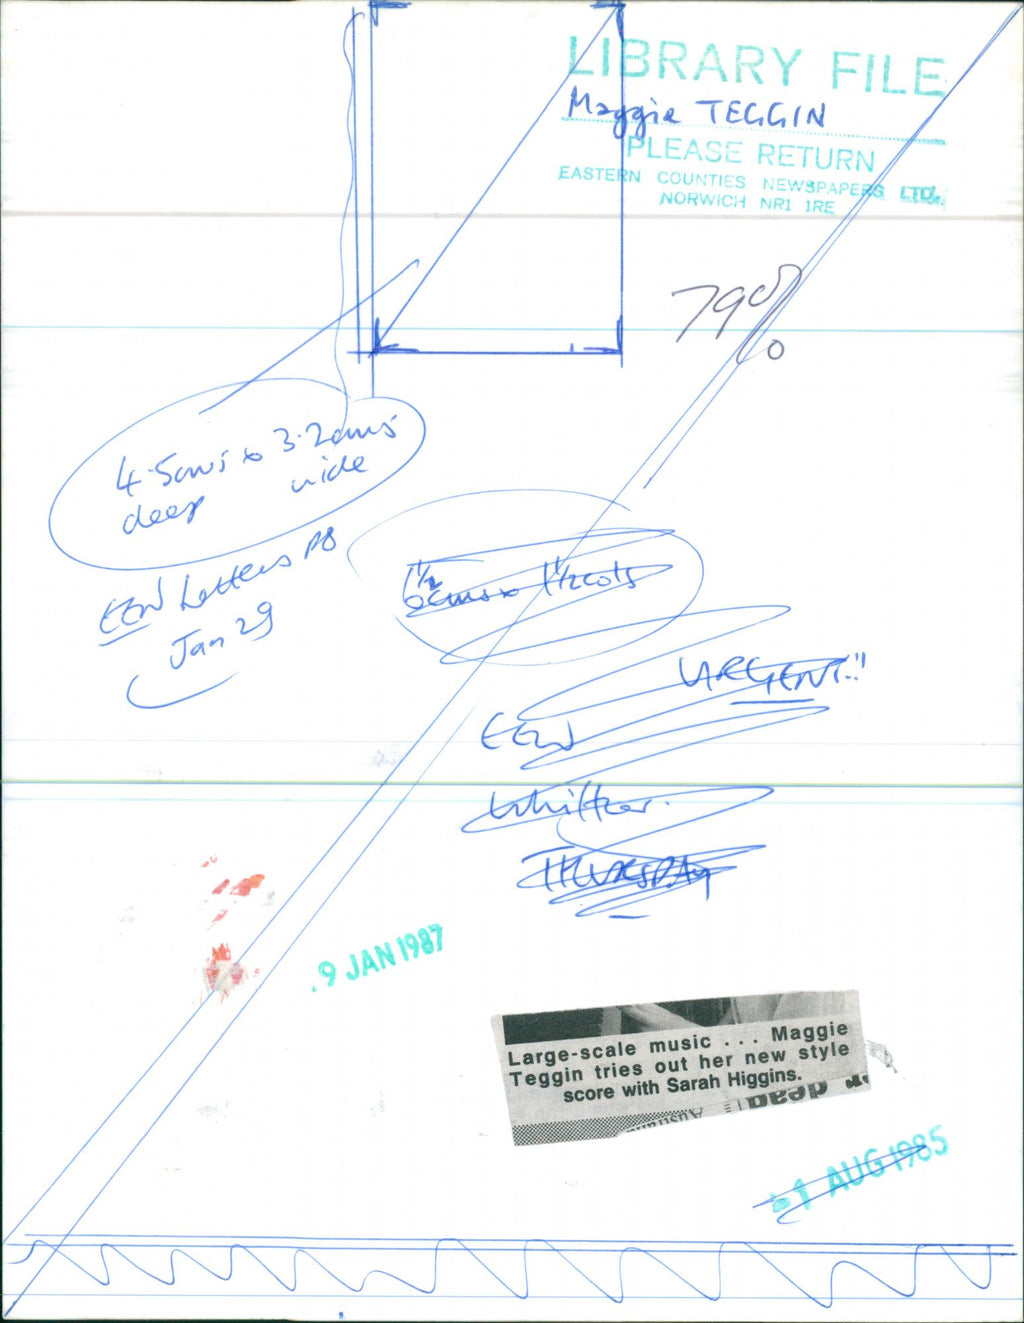 LIBRARY FILE
Maggie TEGGIN
PLEASE RETURN
EASTERN COUNTIES NEWSPAPERS LTD.
NORWICH NR1 1RE
4.5cms x 3.2cms
deep wide
EEN Letters P8
Jan 29
1½ cols
URGENT!!
EEN
Whiffler.
THURSDAY
9 JAN 1987
Large-scale music . . . Maggie
Teggin tries out her new style
score with Sarah Higgins.
dead
-1 AUG 1985